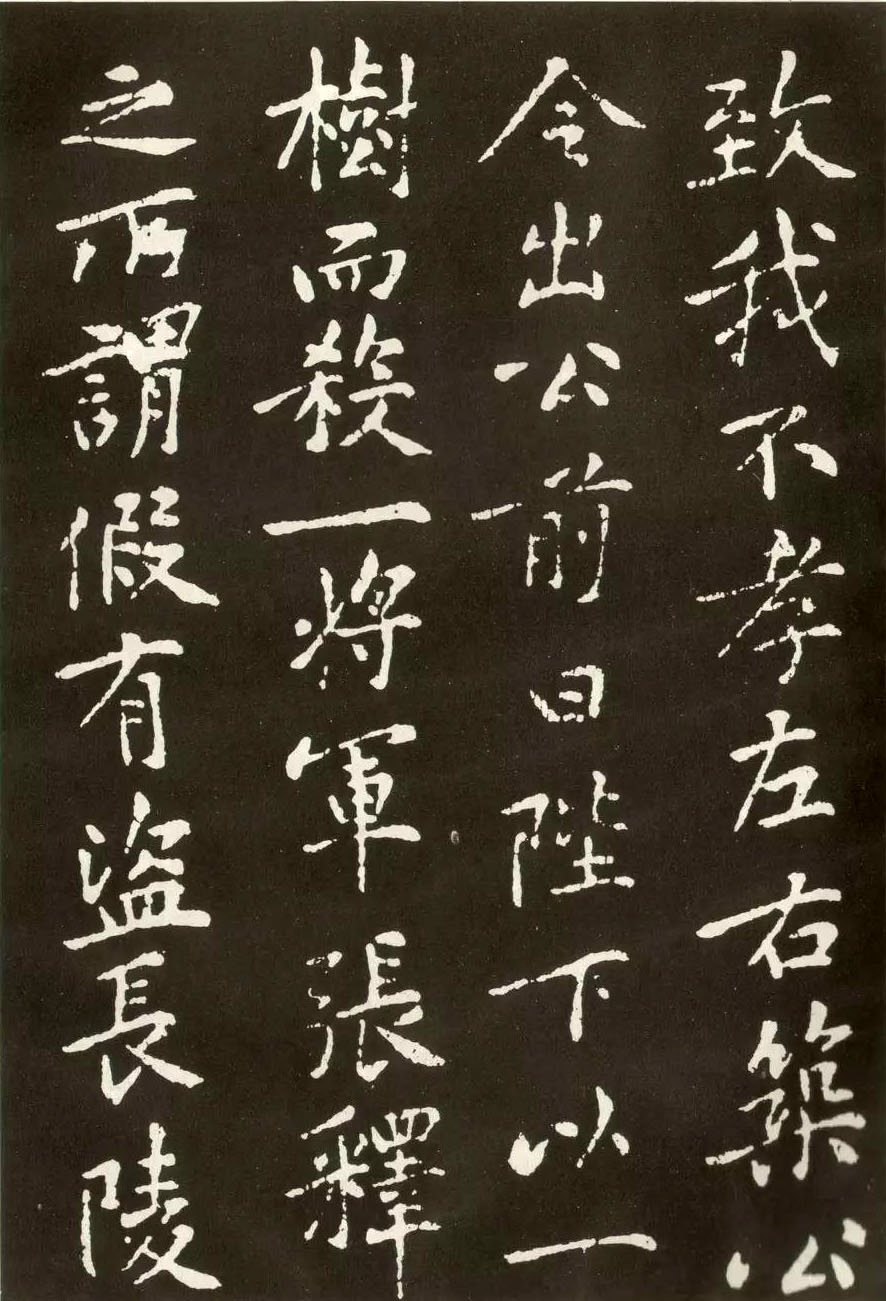 致我不孝左右築公
令出公前曰陛下以一
樹而殺一將軍張釋
之所謂假有盜長陵